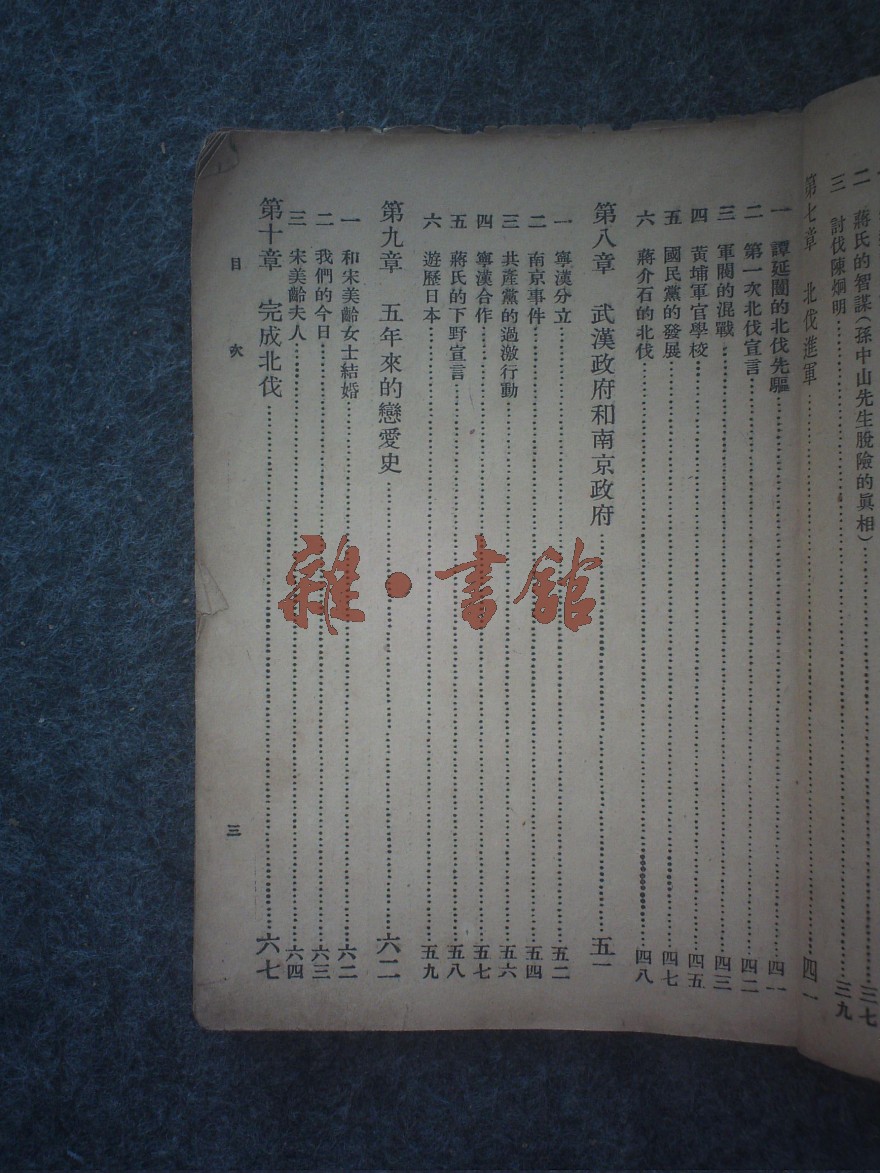 二 蔣氏的智謀（孫中山先生脫險的眞相）……三七
三 討伐陳烱明……三九
第七章 北伐進軍……四一
一 譚延闓的北伐先驅……四一
二 第一次北伐宣言……四二
三 軍閥的混戰……四三
四 黃埔軍官學校……四五
五 國民黨的發展……四七
六 蔣介石的北伐……四八
第八章 武漢政府和南京政府……五一
一 寧漢分立……五二
二 南京事件……五四
三 共產黨的過激行動……五六
四 寧漢合作……五七
五 蔣氏的下野宣言……五八
六 遊歷日本……五九
第九章 五年來的戀愛史……六二
一 和宋美齡女士結婚……六二
二 我們的今日……六三
三 宋美齡夫人……六四
第十章 完成北伐……六七
目次
三
雜·書館